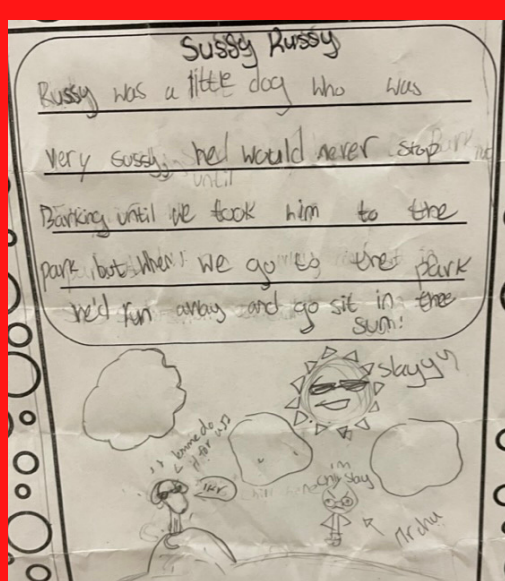 Sussy Russy
Russy was a little dog who was
very sussy, hed would never stop
Barking until we took him to the
park but when we go to the park
he'd run away and go sit in thee
sum!
slayyy
lemme do
it for us
IKR
i'm
slay